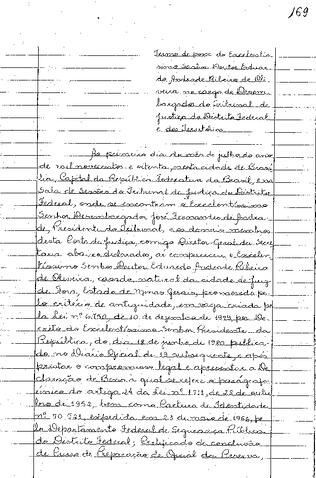 169
Termo de posse do Excelentís-
simo Senhor Doutor Eduar-
do Andrade Ribeiro de Oli-
veira no cargo de Desem-
bargador do Tribunal de
Justiça do Distrito Federal
e dos Territórios
Ao primeiro dia do mês de julho do ano
de mil novecentos e oitenta, nesta cidade de Brasí-
lia, Capital da República Federativa do Brasil, e na
Sala de Sessões do Tribunal de Justiça do Distrito
Federal, onde se encontram o Excelentíssimo
Senhor Desembargador José Fernandes de Andra-
de, Presidente do Tribunal, e os demais membros
desta Corte de Justiça, comigo Diretor-Geral da Secre-
taria abaixo declarado, aí compareceu o Excelen-
tíssimo Senhor Doutor Eduardo Andrade Ribeiro
de Oliveira, casado, natural da cidade de Juiz
de Fora, Estado de Minas Gerais, promovido pe-
lo critério de antiguidade, em vaga criada pe-
la Lei nº 6.750, de 10 de dezembro de 1979, por De-
creto do Excelentíssimo Senhor Presidente da
República, do dia 18 de junho de 1980, publica-
do no Diário Oficial de 19 subsequente, e após
prestar o compromisso legal e apresentar a De-
claração de Bens a qual se refere o parágrafo
único do artigo 24 da Lei nº 1.711, de 28 de outu-
bro de 1952, bem como Carteira de Identidade
nº 70.751, expedida em 23 de maio de 1966, pe-
lo Departamento Federal de Segurança Pública
do Distrito Federal; Certificado de conclusão
de Curso de Preparação de Oficial da Reserva,